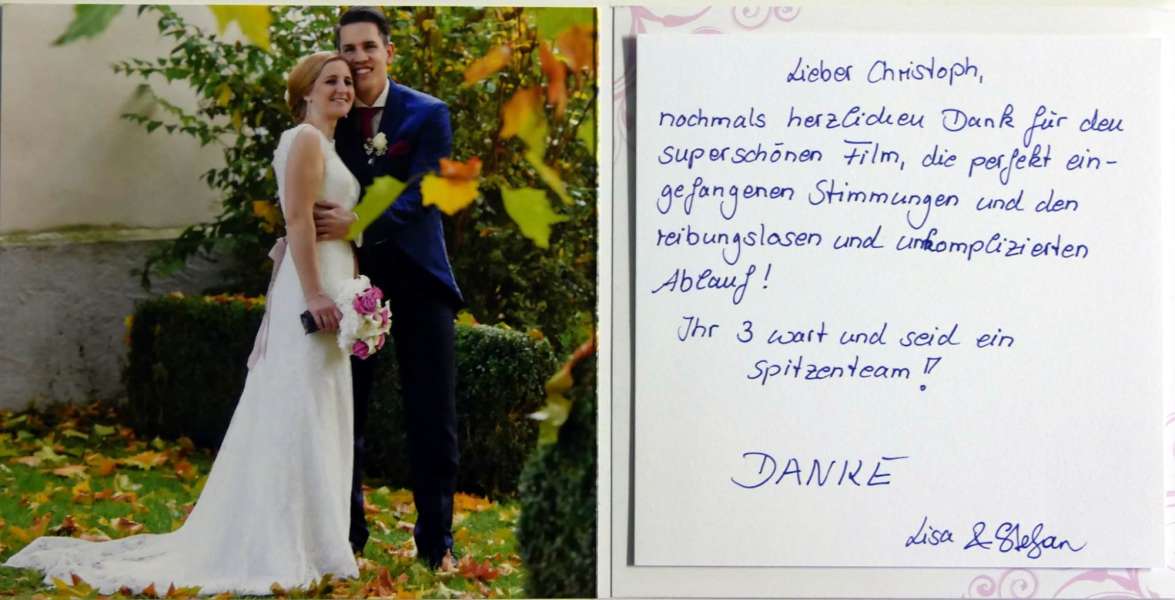 Lieber Christoph,
nochmals herzlichen Dank für den
superschönen Film, die perfekt ein-
gefangenen Stimmungen und den
reibungslosen und unkomplizierten
Ablauf!
Ihr 3 wart und seid ein
Spitzenteam!
DANKE
Lisa & Stefan